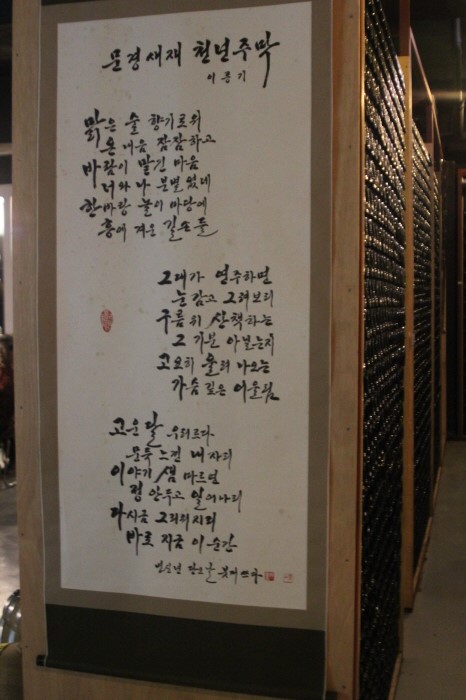 문경새재 천년주막
이종기
맑은 술 향기로워
온 마음 잠잠하고
바람이 말긴 마음
너와 나 분별 없네
한바탕 놀이 마당에
흥에 겨운 길손들
그대가 연주하면
눈 감고 그려보리
구름 위 산책하는
그 기분 아닐는지
고요히 울려 나오는
가슴 깊은 어울림
고운달 우러르다
문득 느낀 내 자리
이야기 샘 마르면
정 안두고 일어나리
다시금 그리워지리
바로 지금 이 순간
붓가 쓰다